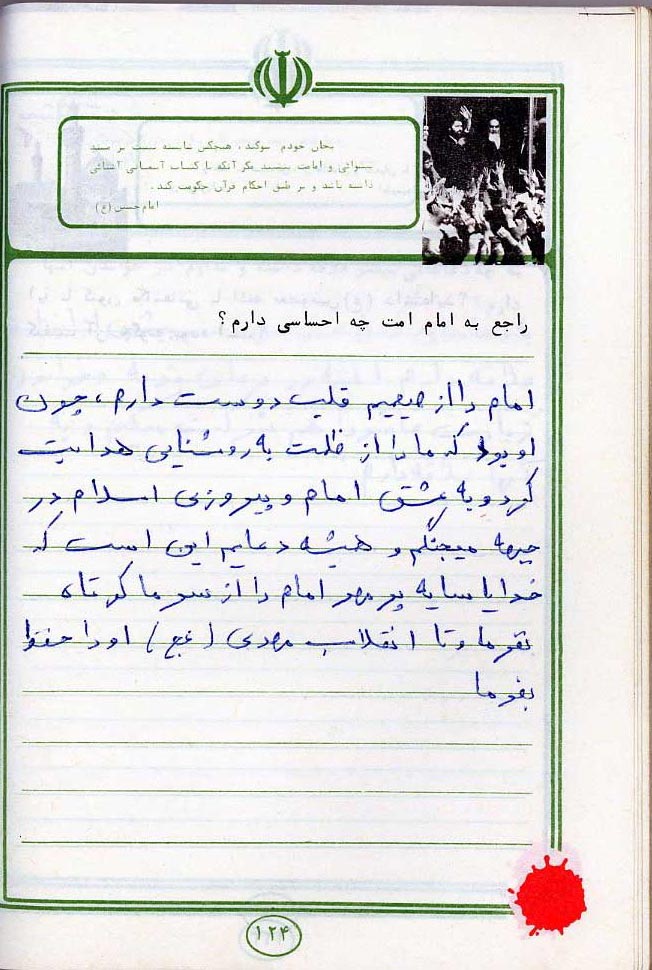 بجان خودم سوگند ، هیچکس شایسته نیست بر مسند
پیشوائی و امامت بنشیند مگر آنکه با کتاب آسمانی آشنائی
داشته باشد و بر طبق احکام قرآن حکومت کند .
امام حسین (ع)
راجع به امام امت چه احساسی دارم ؟
امام را از صمیم قلب دوست دارم ، چون
او بود که ما را از ظلمت به روشنایی هدایت
کرد و به عشق امام و پیروزی اسلام در
جبهه میجنگم و همیشه دعایم این است که
خدایا سایه پر مهر امام را از سر ما کوتاه
نفرما و تا انقلاب مهدی (عج) او را حفظ
بفرما
۱۲۴